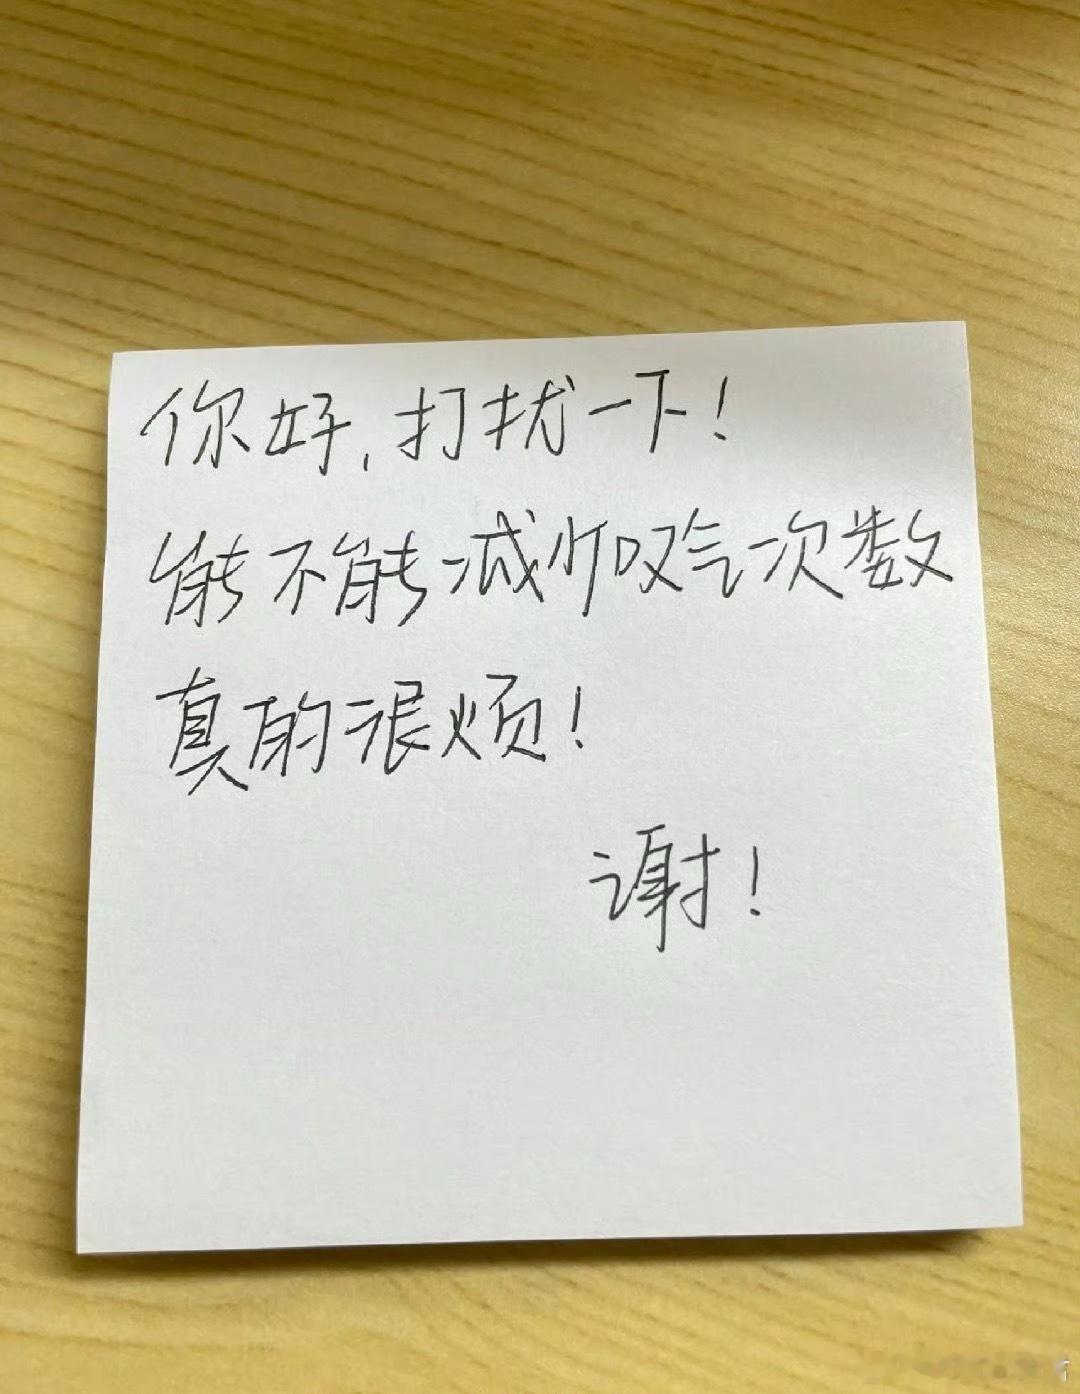 你好，打扰一下！
能不能减少叹气次数
真的很烦！
谢！